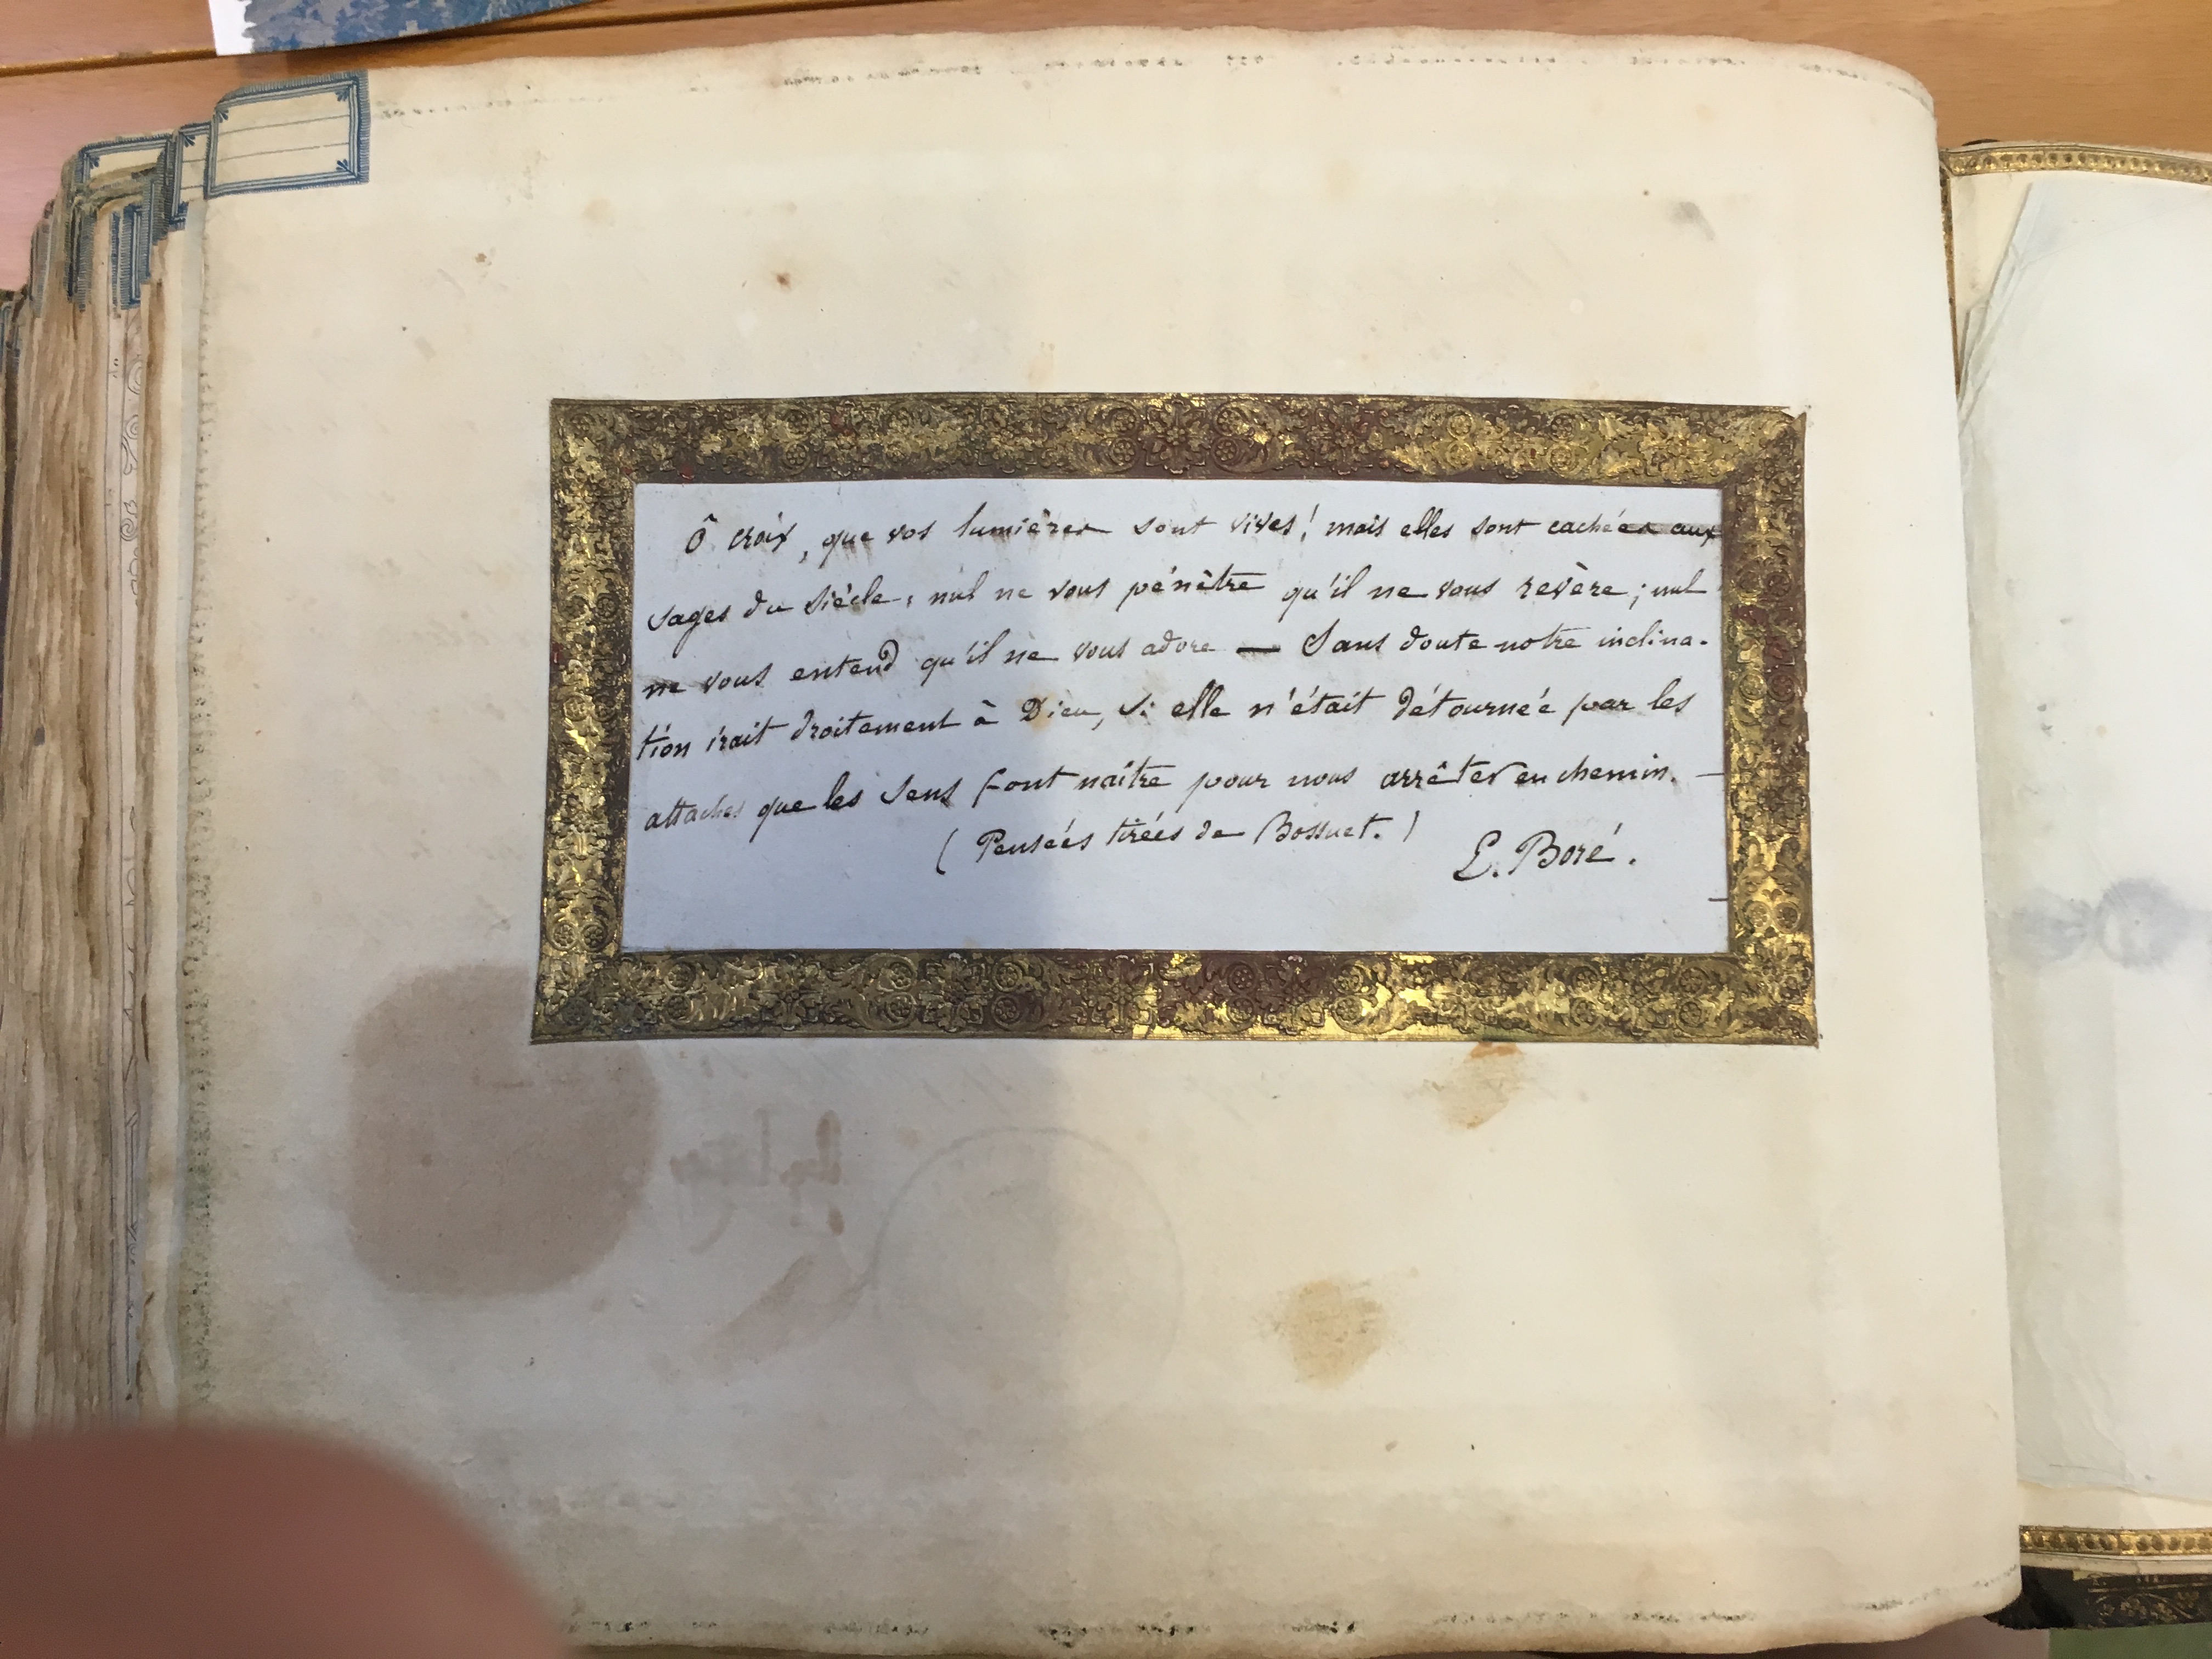 Ô croix, que vos lumières sont vives! mais elles sont cachées aux
sages du siècle; nul ne vous pénètre qu'il ne vous revère; nul
ne vous entend qu'il ne vous adore — Sans doute notre inclina-
tion irait droitement à Dieu, si elle n'était détournée par les
attaches que les sens font naître pour nous arrêter en chemin. —
(Pensées tirées de Bossuet.)
E. Boré.